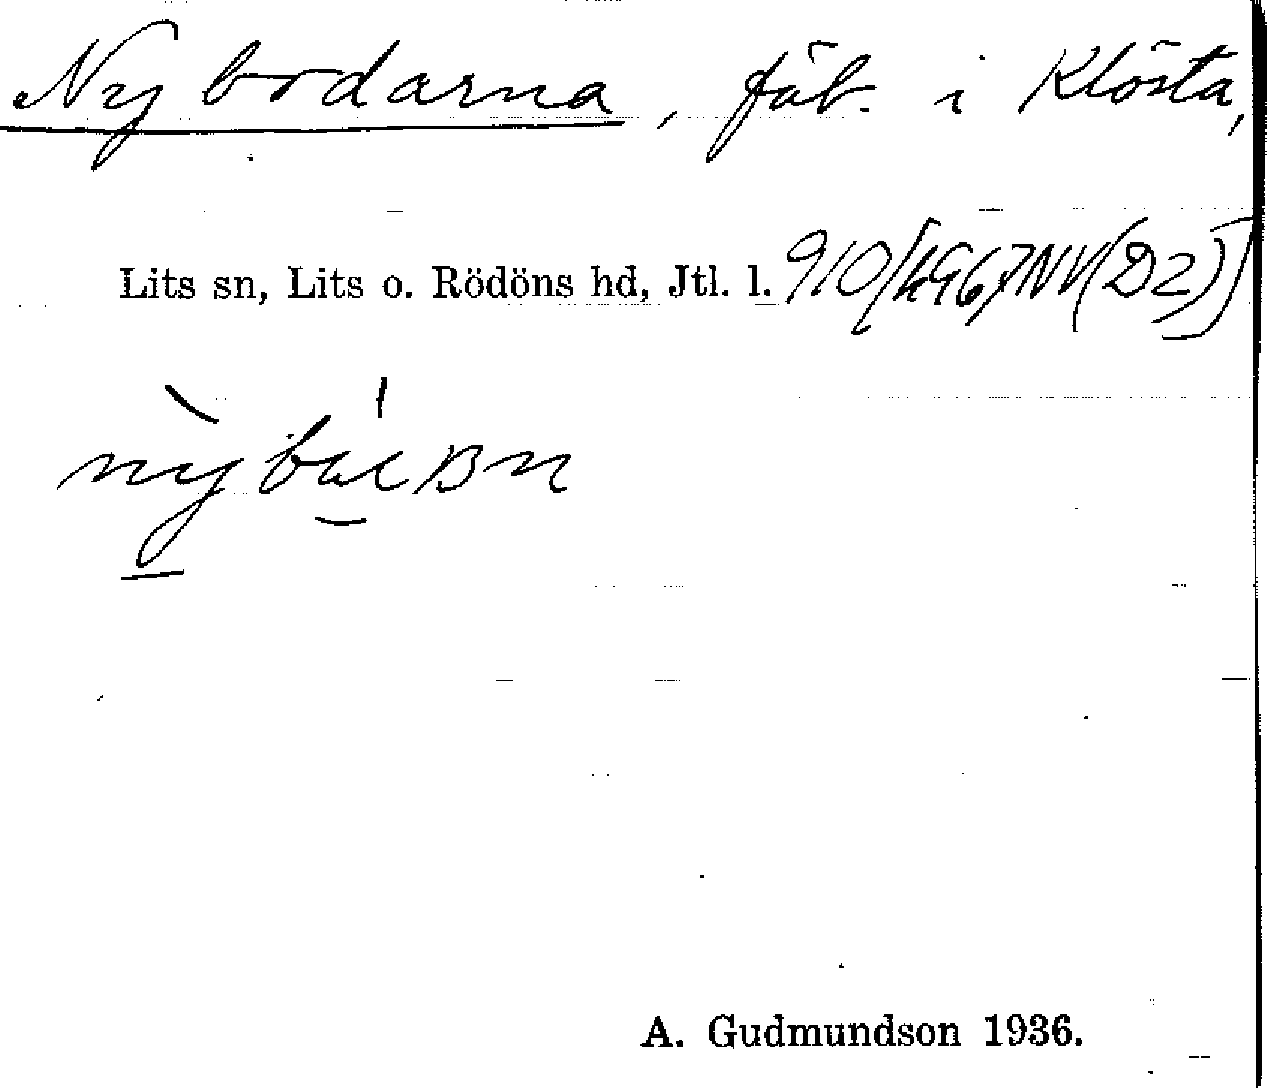 Nybodarna, fäb. i Klösta,
Lits sn, Lits o. Rödöns hd, Jtl. l. 910/
A. Gudmundson 1936.